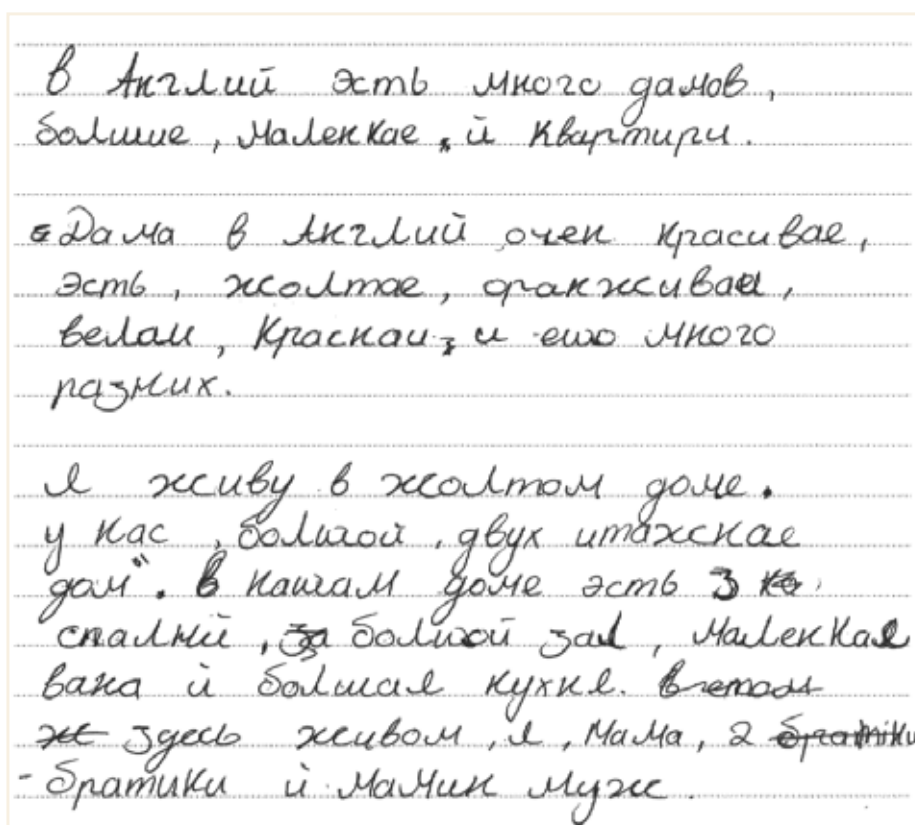 в Англий эсть много дамов,
болшие, маленкае, й квартири.
Дама в Англий очен красивае,
эсть, жолтае, оранживаи,
велаи, Краснаи, и ешо много
разних.
я живу в жолтом доме.
у нас, болшой, двух итажнае
дом". в нашам доме эсть 3
спалнй, болшой зал, маленкая
вана й болшая кухня. в етом
здесь живом, я, мама, 2 братики
- братики й мамин муж.